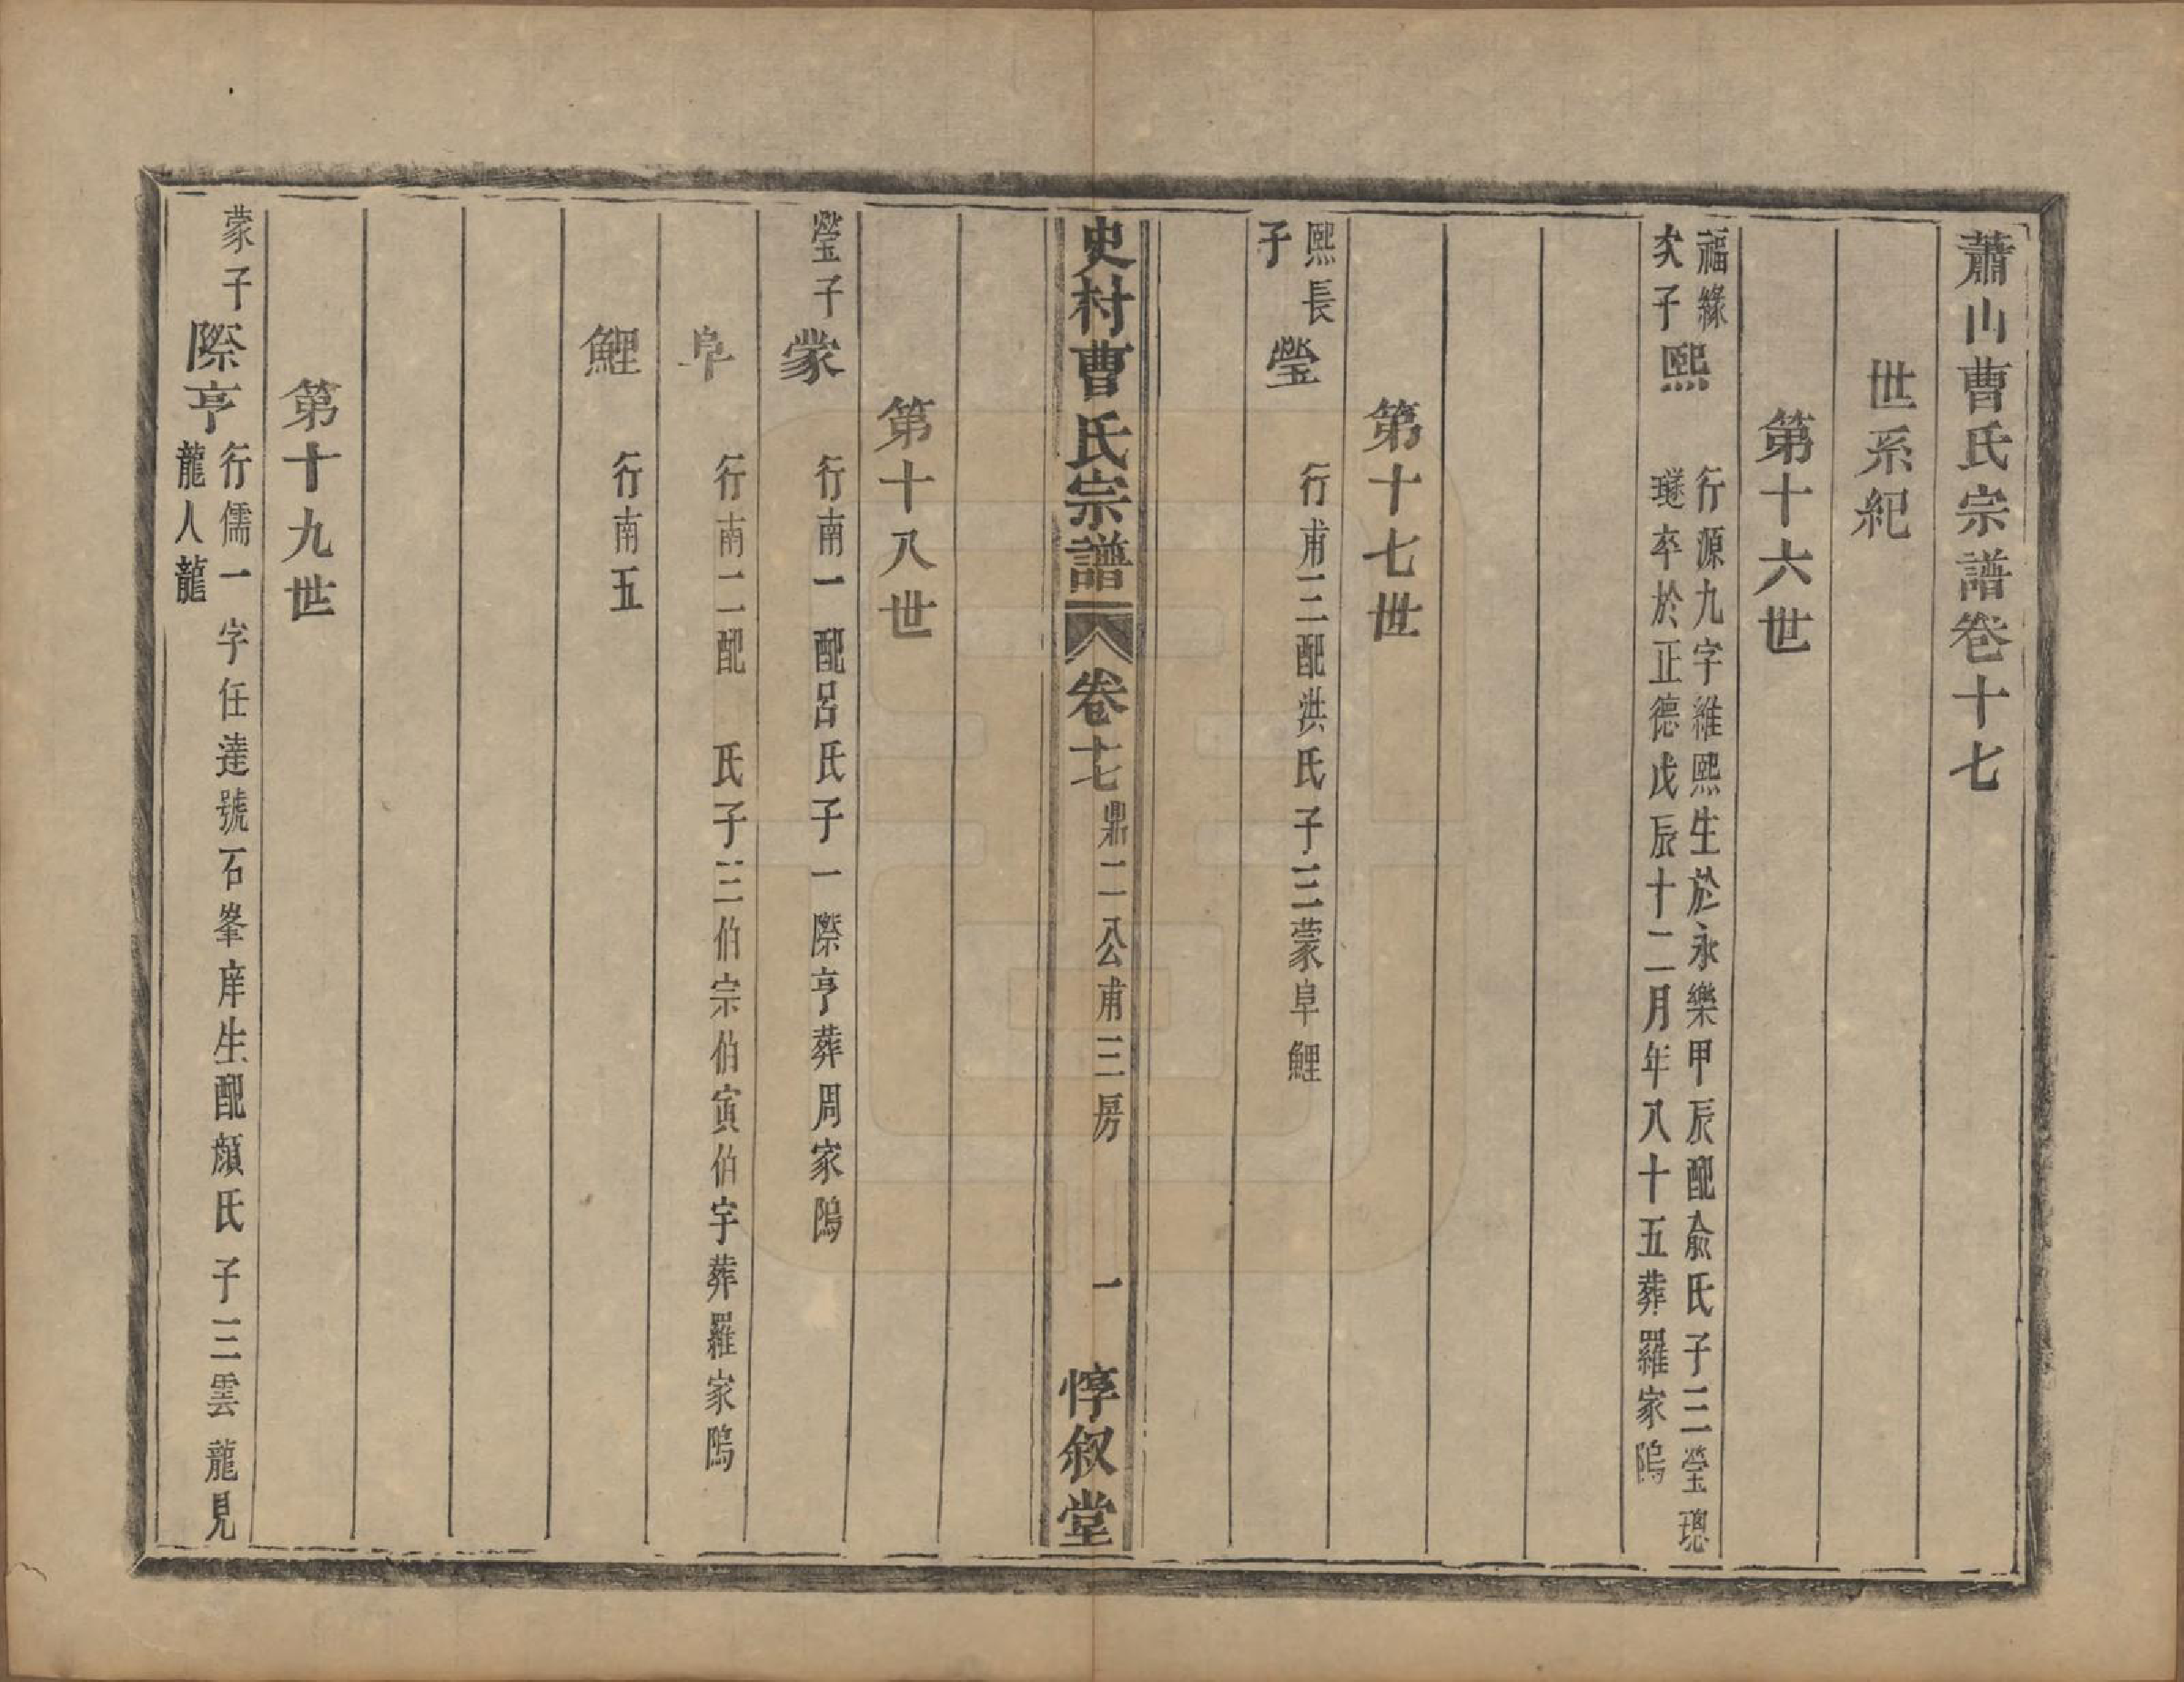 蕭山曹氏宗譜卷十七
世系紀
第十六世
福緣
次子
熙
行源九字維熙生於永樂甲辰配俞氏子三瑩璁
璲卒於正德戊辰十二月年八十五葬羅家隖
第十七世
熙長
子
瑩
行甫三配洪氏子三蒙阜鯉
史村曹氏宗譜 卷十七 鼎二公甫三房 一 惇叙堂
第十八世
瑩子
蒙
行南一配呂氏子一際亨葬周家隖
阜
行南二配 氏子三伯宗伯寅伯宇葬羅家隖
鯉
行南五
第十九世
蒙子
際亨
行儒一字任逹號石峯庠生配顔氏子三雲龍見
龍人龍